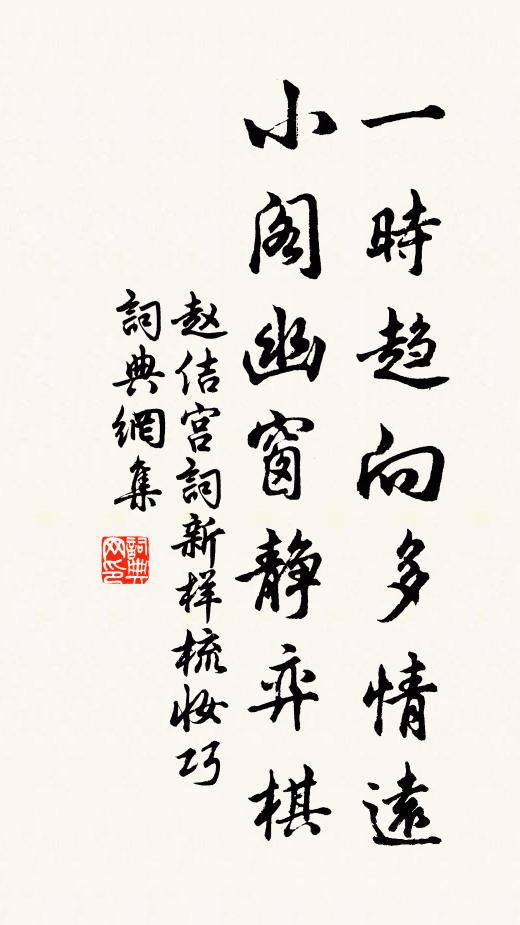 一時趋向多情遠
小阁幽窗静弈棋
赵佶宫詞新样梳妆巧
詞典網集
詞典网印